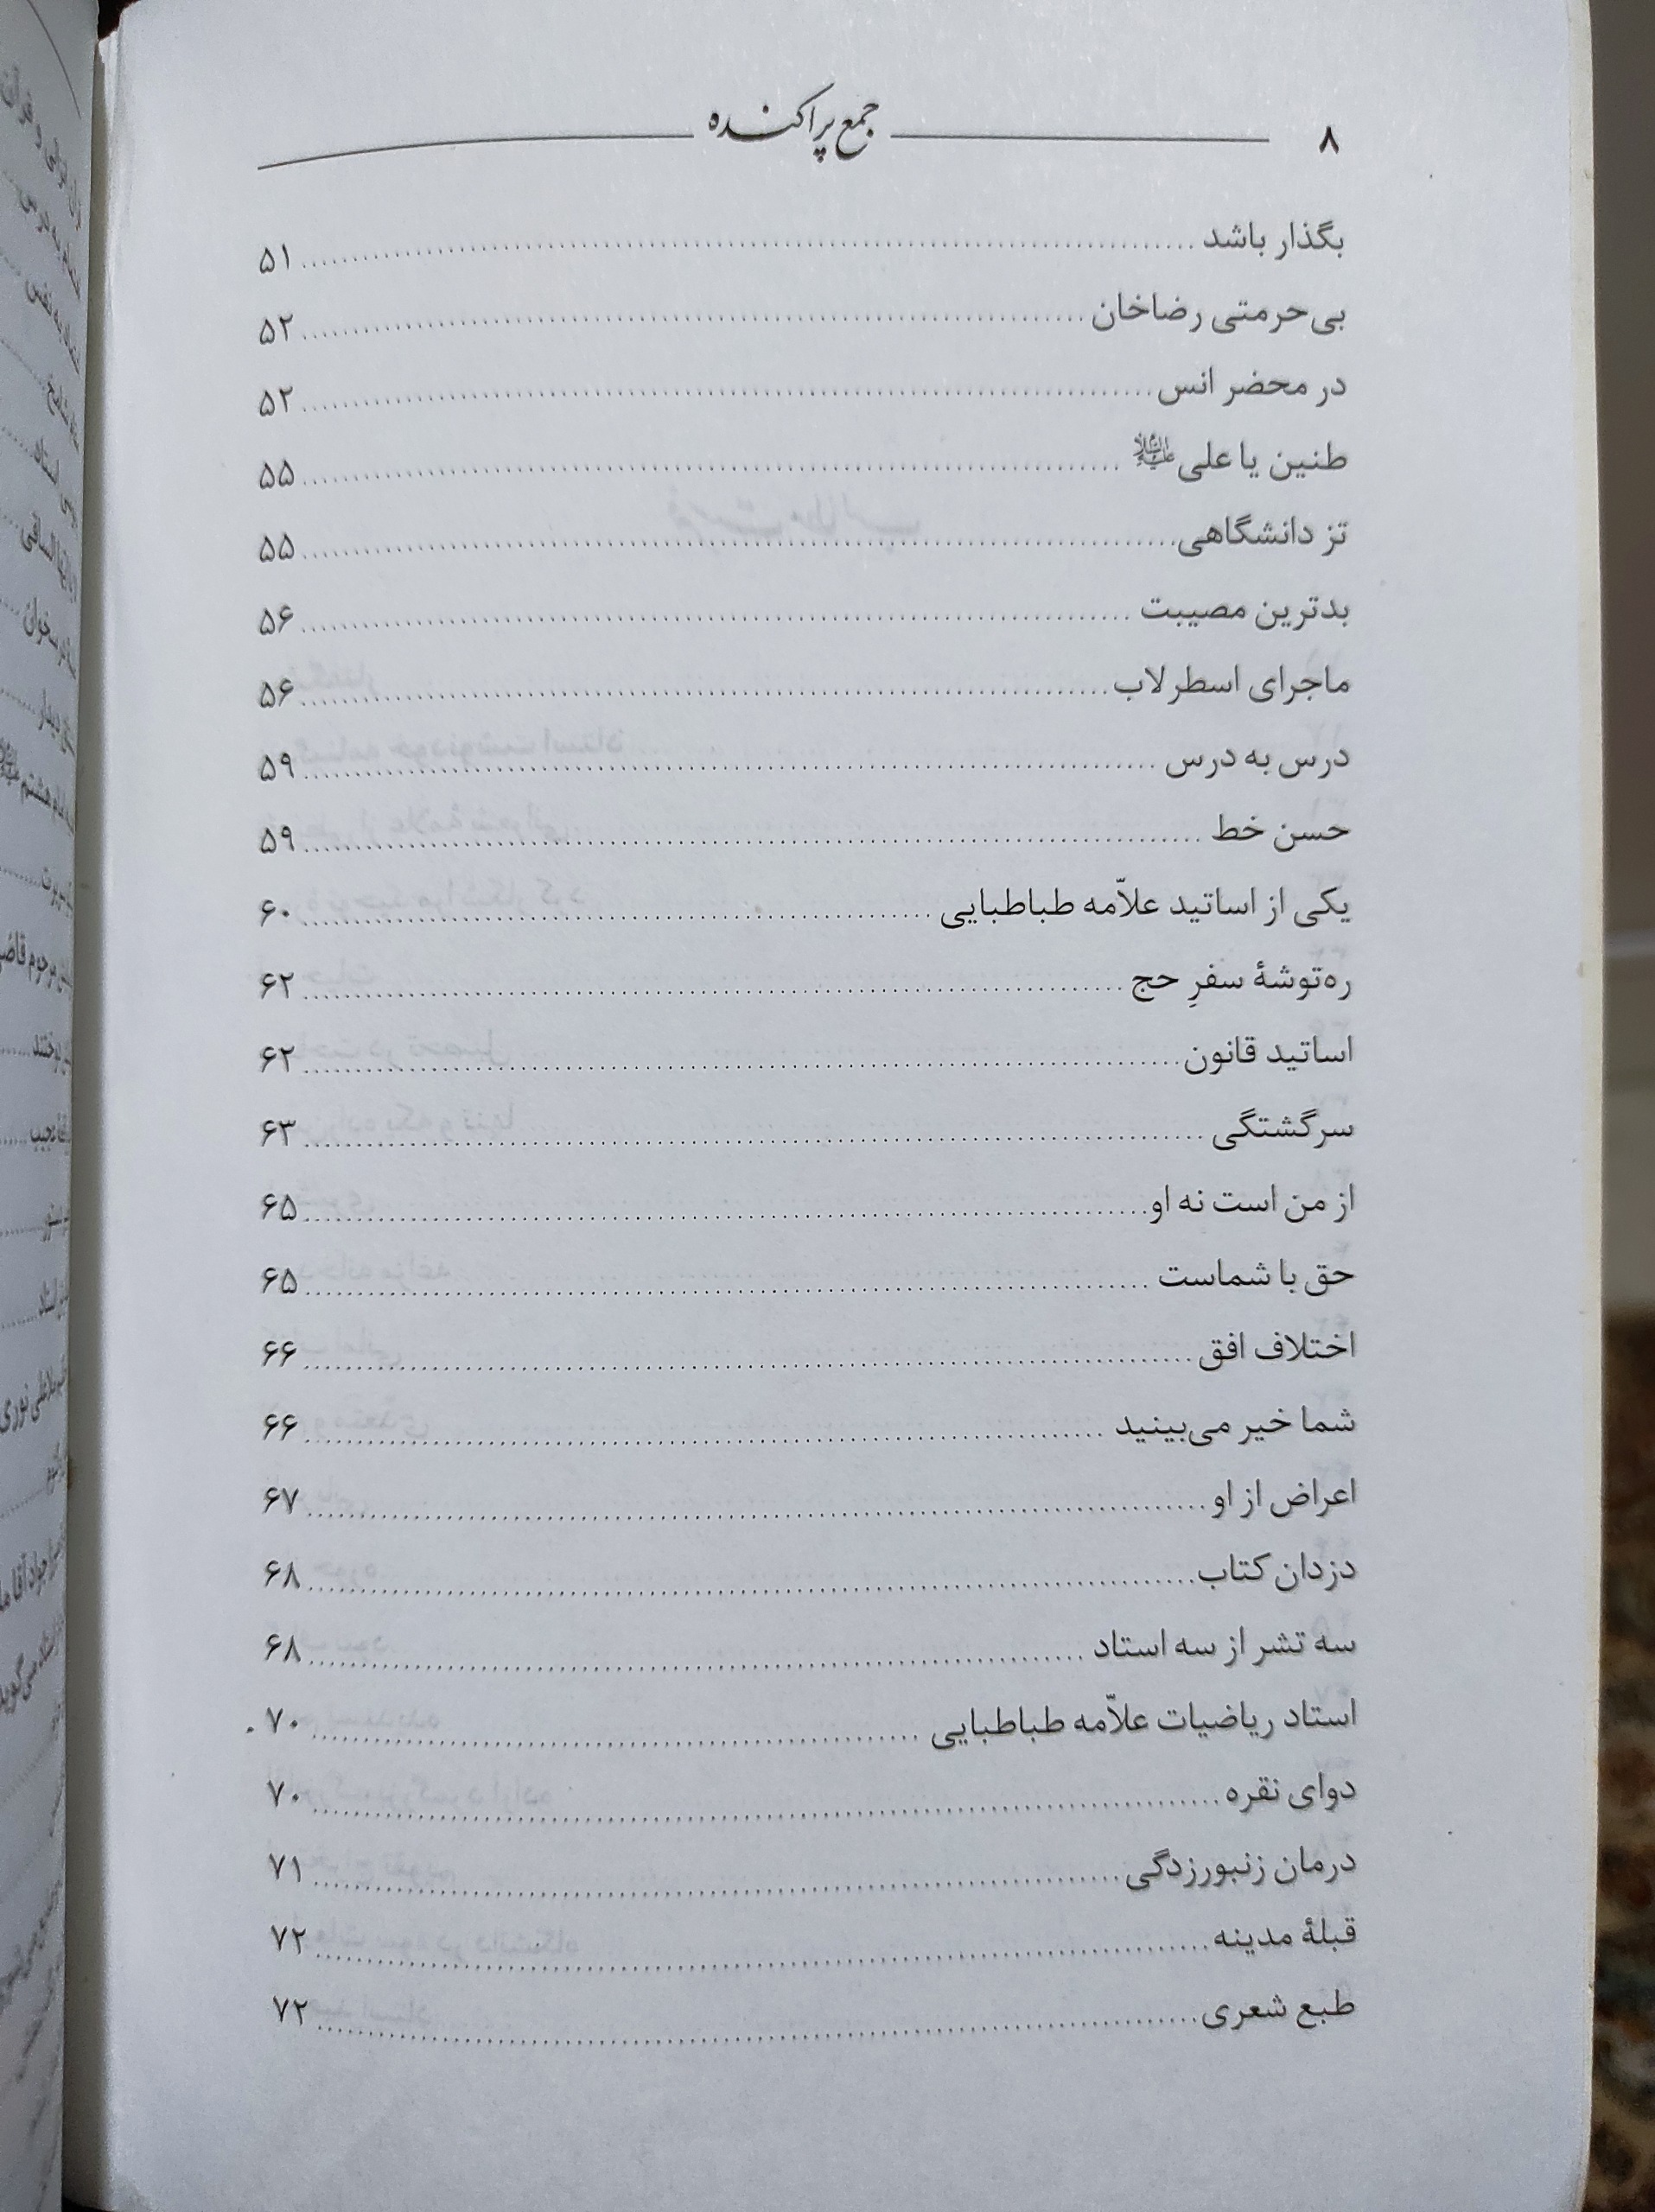 ۸ جمع پراکنده
بگذار باشد ........ ۵۱
بی‌حرمتی رضاخان ........ ۵۲
در محضر انس ........ ۵۲
طنین یا علی علیه‌السلام ........ ۵۵
تز دانشگاهی ........ ۵۵
بدترین مصیبت ........ ۵۶
ماجرای اسطرلاب ........ ۵۶
درس به درس ........ ۵۹
حسن خط ........ ۵۹
یکی از اساتید علاّمه طباطبایی ........ ۶۰
ره‌توشهٔ سفرِ حج ........ ۶۲
اساتید قانون ........ ۶۲
سرگشتگی ........ ۶۳
از من است نه او ........ ۶۵
حق با شماست ........ ۶۵
اختلاف افق ........ ۶۶
شما خیر می‌بینید ........ ۶۶
اعراض از او ........ ۶۷
دزدان کتاب ........ ۶۸
سه تشر از سه استاد ........ ۶۸
استاد ریاضیات علاّمه طباطبایی ........ ۷۰
دوای نقره ........ ۷۰
درمان زنبورزدگی ........ ۷۱
قبلهٔ مدینه ........ ۷۲
طبع شعری ........ ۷۲